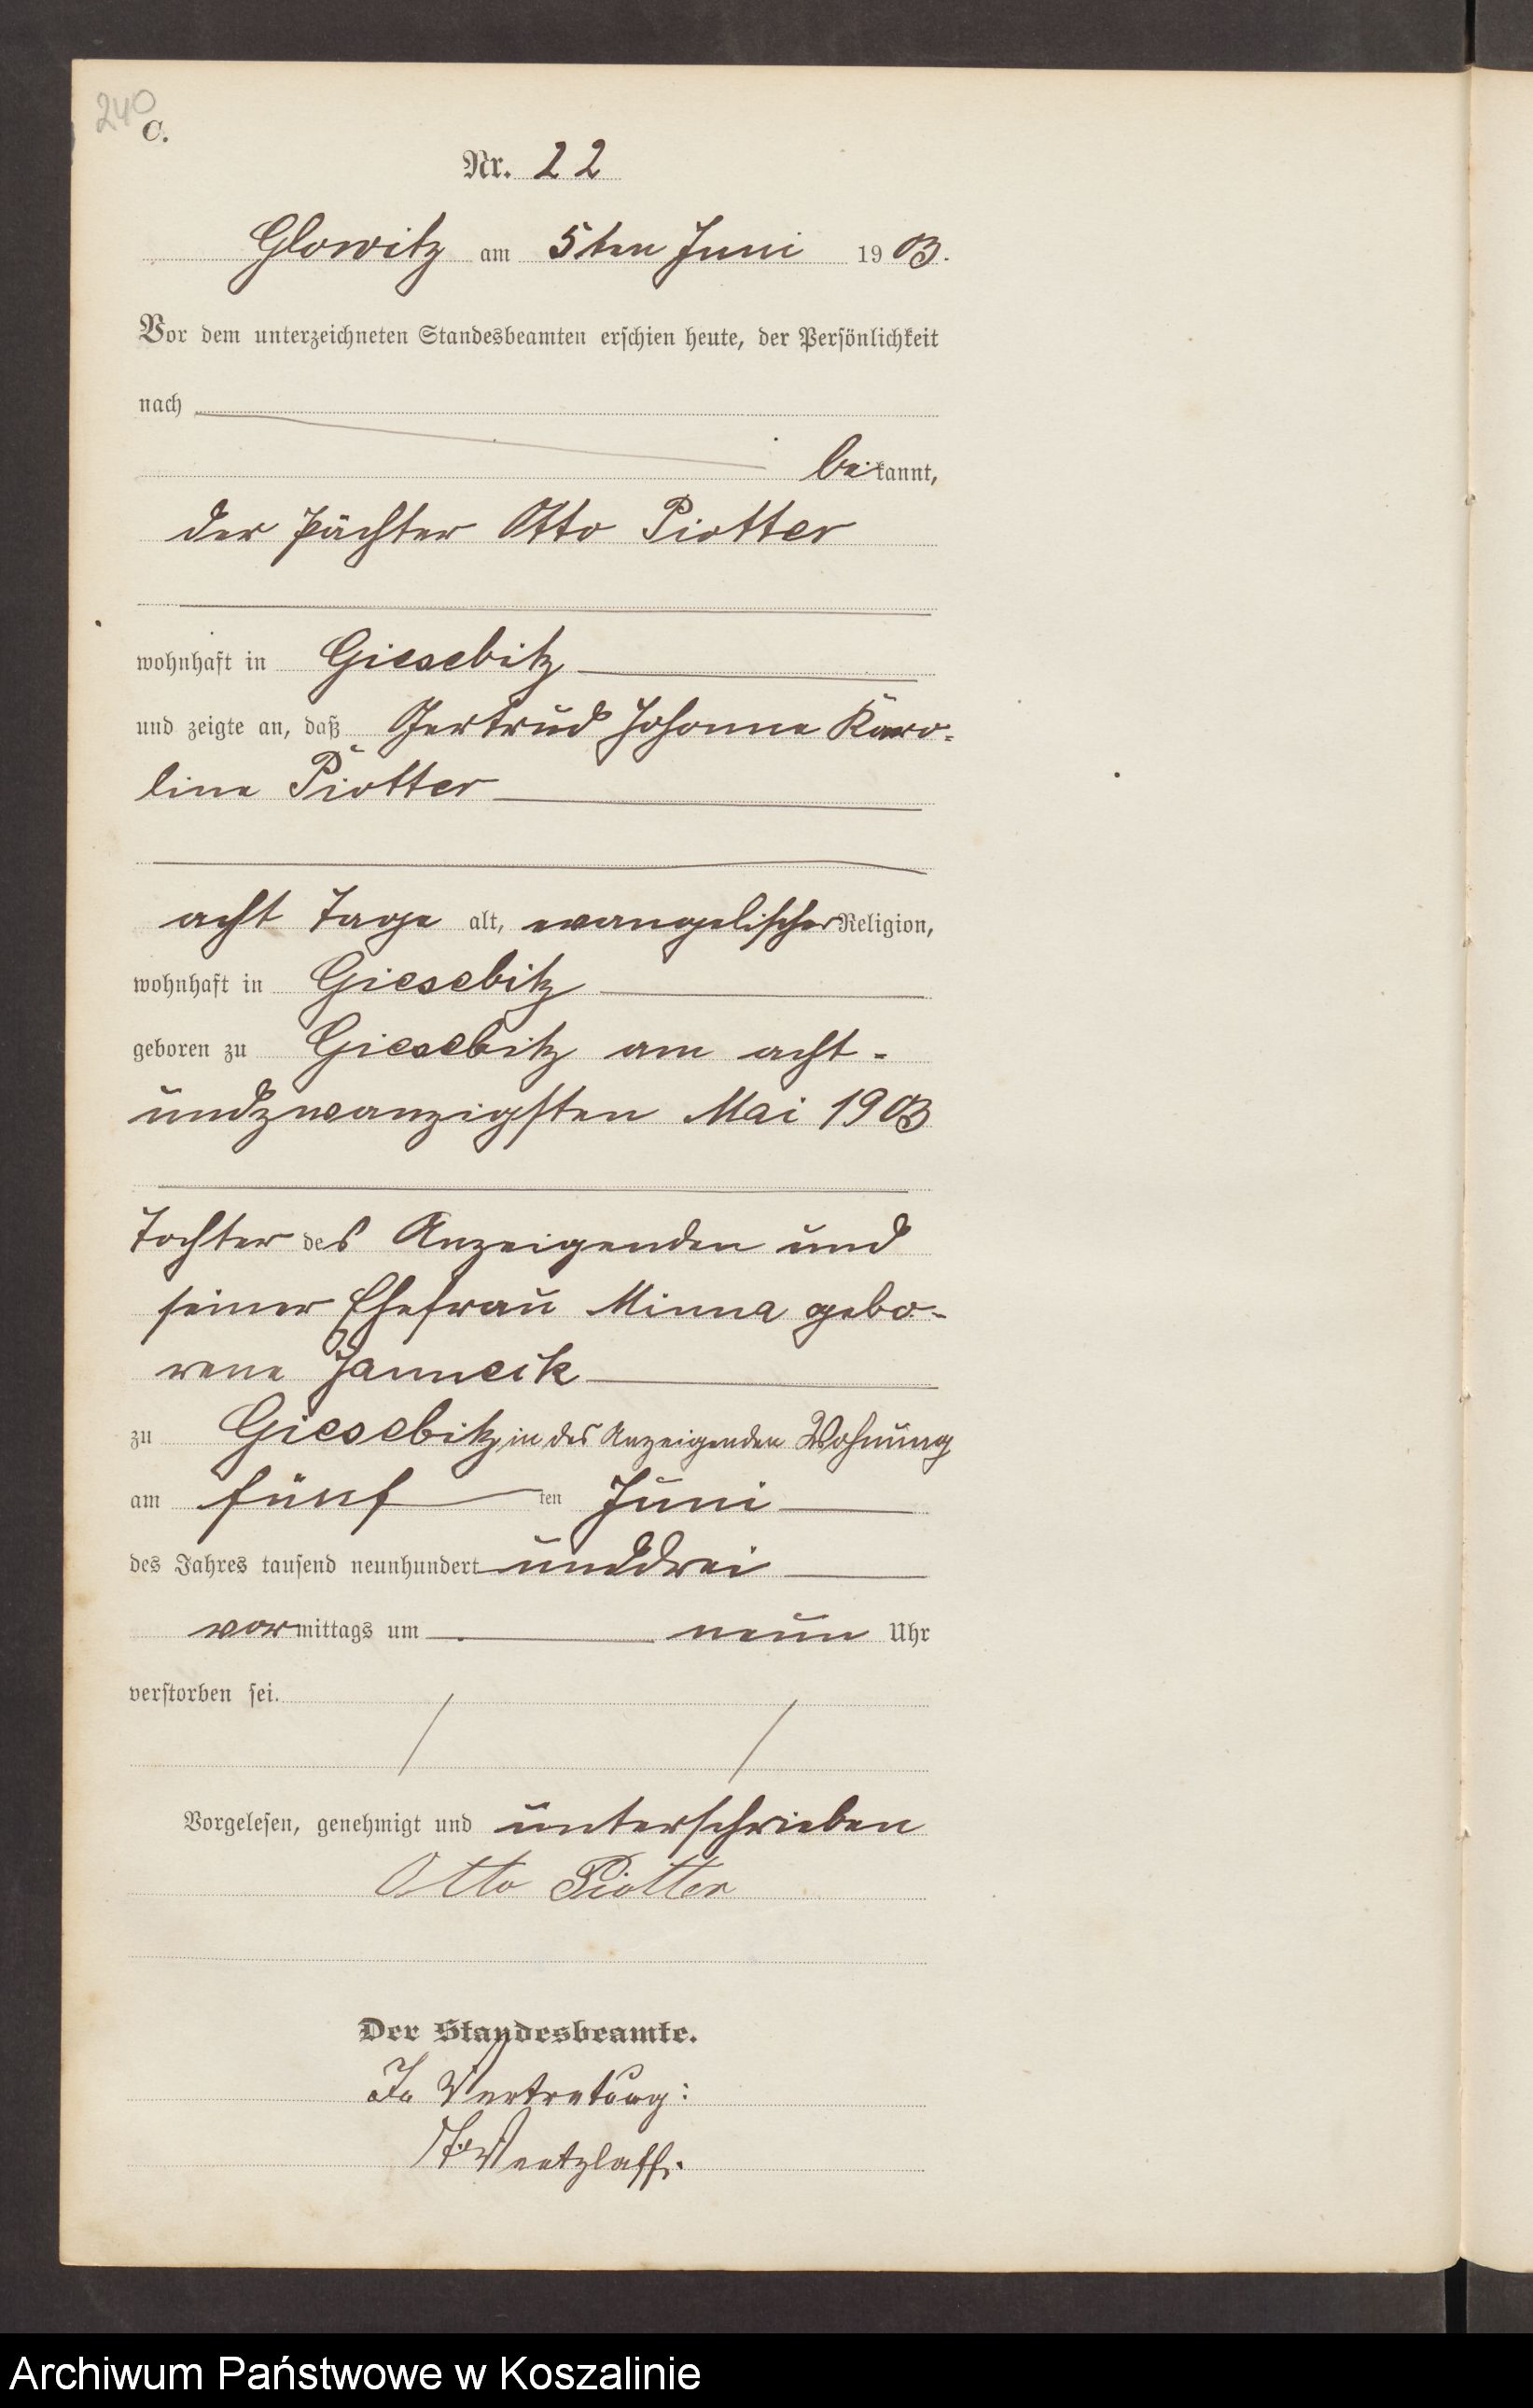 240
C.
Nr. 22
Glowitz am 5ten Juni 1903.
Vor dem unterzeichneten Standesbeamten erschien heute, der Persönlichkeit
nach
bekannt,
der Pächter Otto Piotter
wohnhaft in Giesebitz
und zeigte an, daß Gertrud Johanna Karo-
line Piotter
acht Tage alt, evangelischer Religion,
wohnhaft in Giesebitz
geboren zu Giesebitz am acht-
undzwanzigsten Mai 1903
Tochter des Anzeigenden und
seiner Ehefrau Minna gebo-
rene Janneik
zu Giesebitz in des Anzeigenden Wohnung
am fünf ten Juni
des Jahres tausend neunhundert unddrei
vormittags um neun Uhr
verstorben sei.
Vorgelesen, genehmigt und unterschrieben
Otto Piotter
Der Standesbeamte.
In Vertretung:
Wentzlaff.
Archiwum Państwowe w Koszalinie